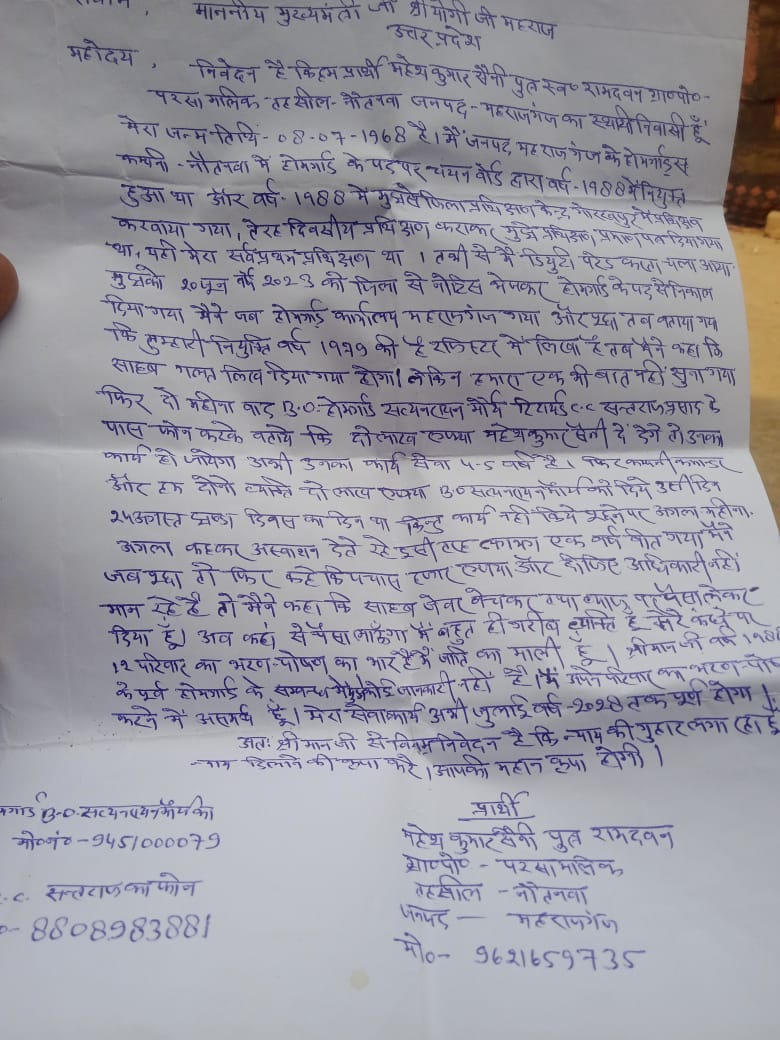 माननीय मुख्यमंत्री जी श्री योगी जी महराज
उत्तर प्रदेश
महोदय,
निवेदन है कि हम प्रार्थी महेश कुमार सैनी पुत्र स्व० रामदवन ग्रा०पो०-
परसा मलिक- तहसील- नौतनवा जनपद- महराजगंज का स्थायी निवासी हूँ
मेरा जन्म-तिथि- 08-07-1968 है। मैं जनपद महराजगंज के होमगार्ड्स
कम्पनी- नौतनवा में होमगार्ड के पद पर चयन बोर्ड द्वारा वर्ष-1988 में नियुक्त
हुआ था और वर्ष-1988 में मुझे जिला प्रशिक्षण केन्द्र गोरखपुर में प्रशिक्षण
करवाया गया, तेरह दिवसीय प्रशिक्षण कराकर मुझे प्रशिक्षण प्रमाण पत्र दिया गया
था, यही मेरा सर्वप्रथम प्रशिक्षण था। तभी से मैं डियुटी परेड करता चला आया
मुझको 20 जून वर्ष 2023 को जिला से नोटिस भेजकर होमगार्ड के पद से निकाल
दिया गया मैंने जब होमगार्ड कार्यालय महराजगंज गया और पूछा तब बताया गया
कि तुम्हारी नियुक्ति वर्ष 1979 की है रजिस्टर में लिखा है तब मैंने कहा कि
साहब गलत लिख दिया गया होगा। लेकिन हमारा एक भी बात नहीं सुना गया
फिर दो महीना बाद B.O. होमगार्ड सत्यनरायन मौर्य रिटायर्ड C.C सन्तराज प्रसाद के
पास फोन करके बताये कि दो लाख रुपया महेश कुमार सैनी दे देंगे तो उनका
कार्य हो जायेगा अभी उनका कार्य सेवा 4-5 वर्ष है। कम्पनी कमान्डर
और हम दोनों व्यक्ति दो लाख रुपया BO सत्यनरायन मौर्य को दिये उसी दिन
24 अगस्त दिवस का दिन था किन्तु कार्य नहीं किये पूछने पर अगला महीना-
अगला कहकर अस्वाशन देते रहे इसी तरह लगभग एक वर्ष बीत गया मैंने
जब पूछा तो फिर कहे कि पचास हजार रुपया और दीजिए अधिकारी नहीं
मान रहे है तो मैंने कहा कि साहब जेवर बेचकर तथा ब्याज पर पैसा लेकर
दिया हूँ। अब कहाँ से पैसा लाऊँगा मैं बहुत ही गरीब व्यक्ति हूँ मेरे कन्धे पर
12 परिवार का भरण-पोषण का भार है मैं जाति का माली हूँ। श्री मान जी वर्ष 1988
के पूर्व होमगार्ड के सम्बन्ध में मुझे कोई जानकारी नहीं है। मैं अपने परिवार का भरण-पोषण
करने में असमर्थ हूँ। मेरा सेवाकार्य अभी जुलाई वर्ष-2028 तक पूर्ण होगा।
अतः श्री मान जी से विनम्र निवेदन है कि न्याय की गुहार लगा रहा हूँ
न्याय दिलाने की कृपा करें। आपकी महान कृपा होगी।
प्रार्थी
महेश कुमार सैनी पुत्र रामदवन
ग्रा०पो० - परसा मलिक
तहसील - नौतनवा
जनपद — महराजगंज
मो०- 9621659735
B.O. सत्यनरायन मौर्य का
मो०नं०-9451000079
सन्तराज का फोन
8808983881